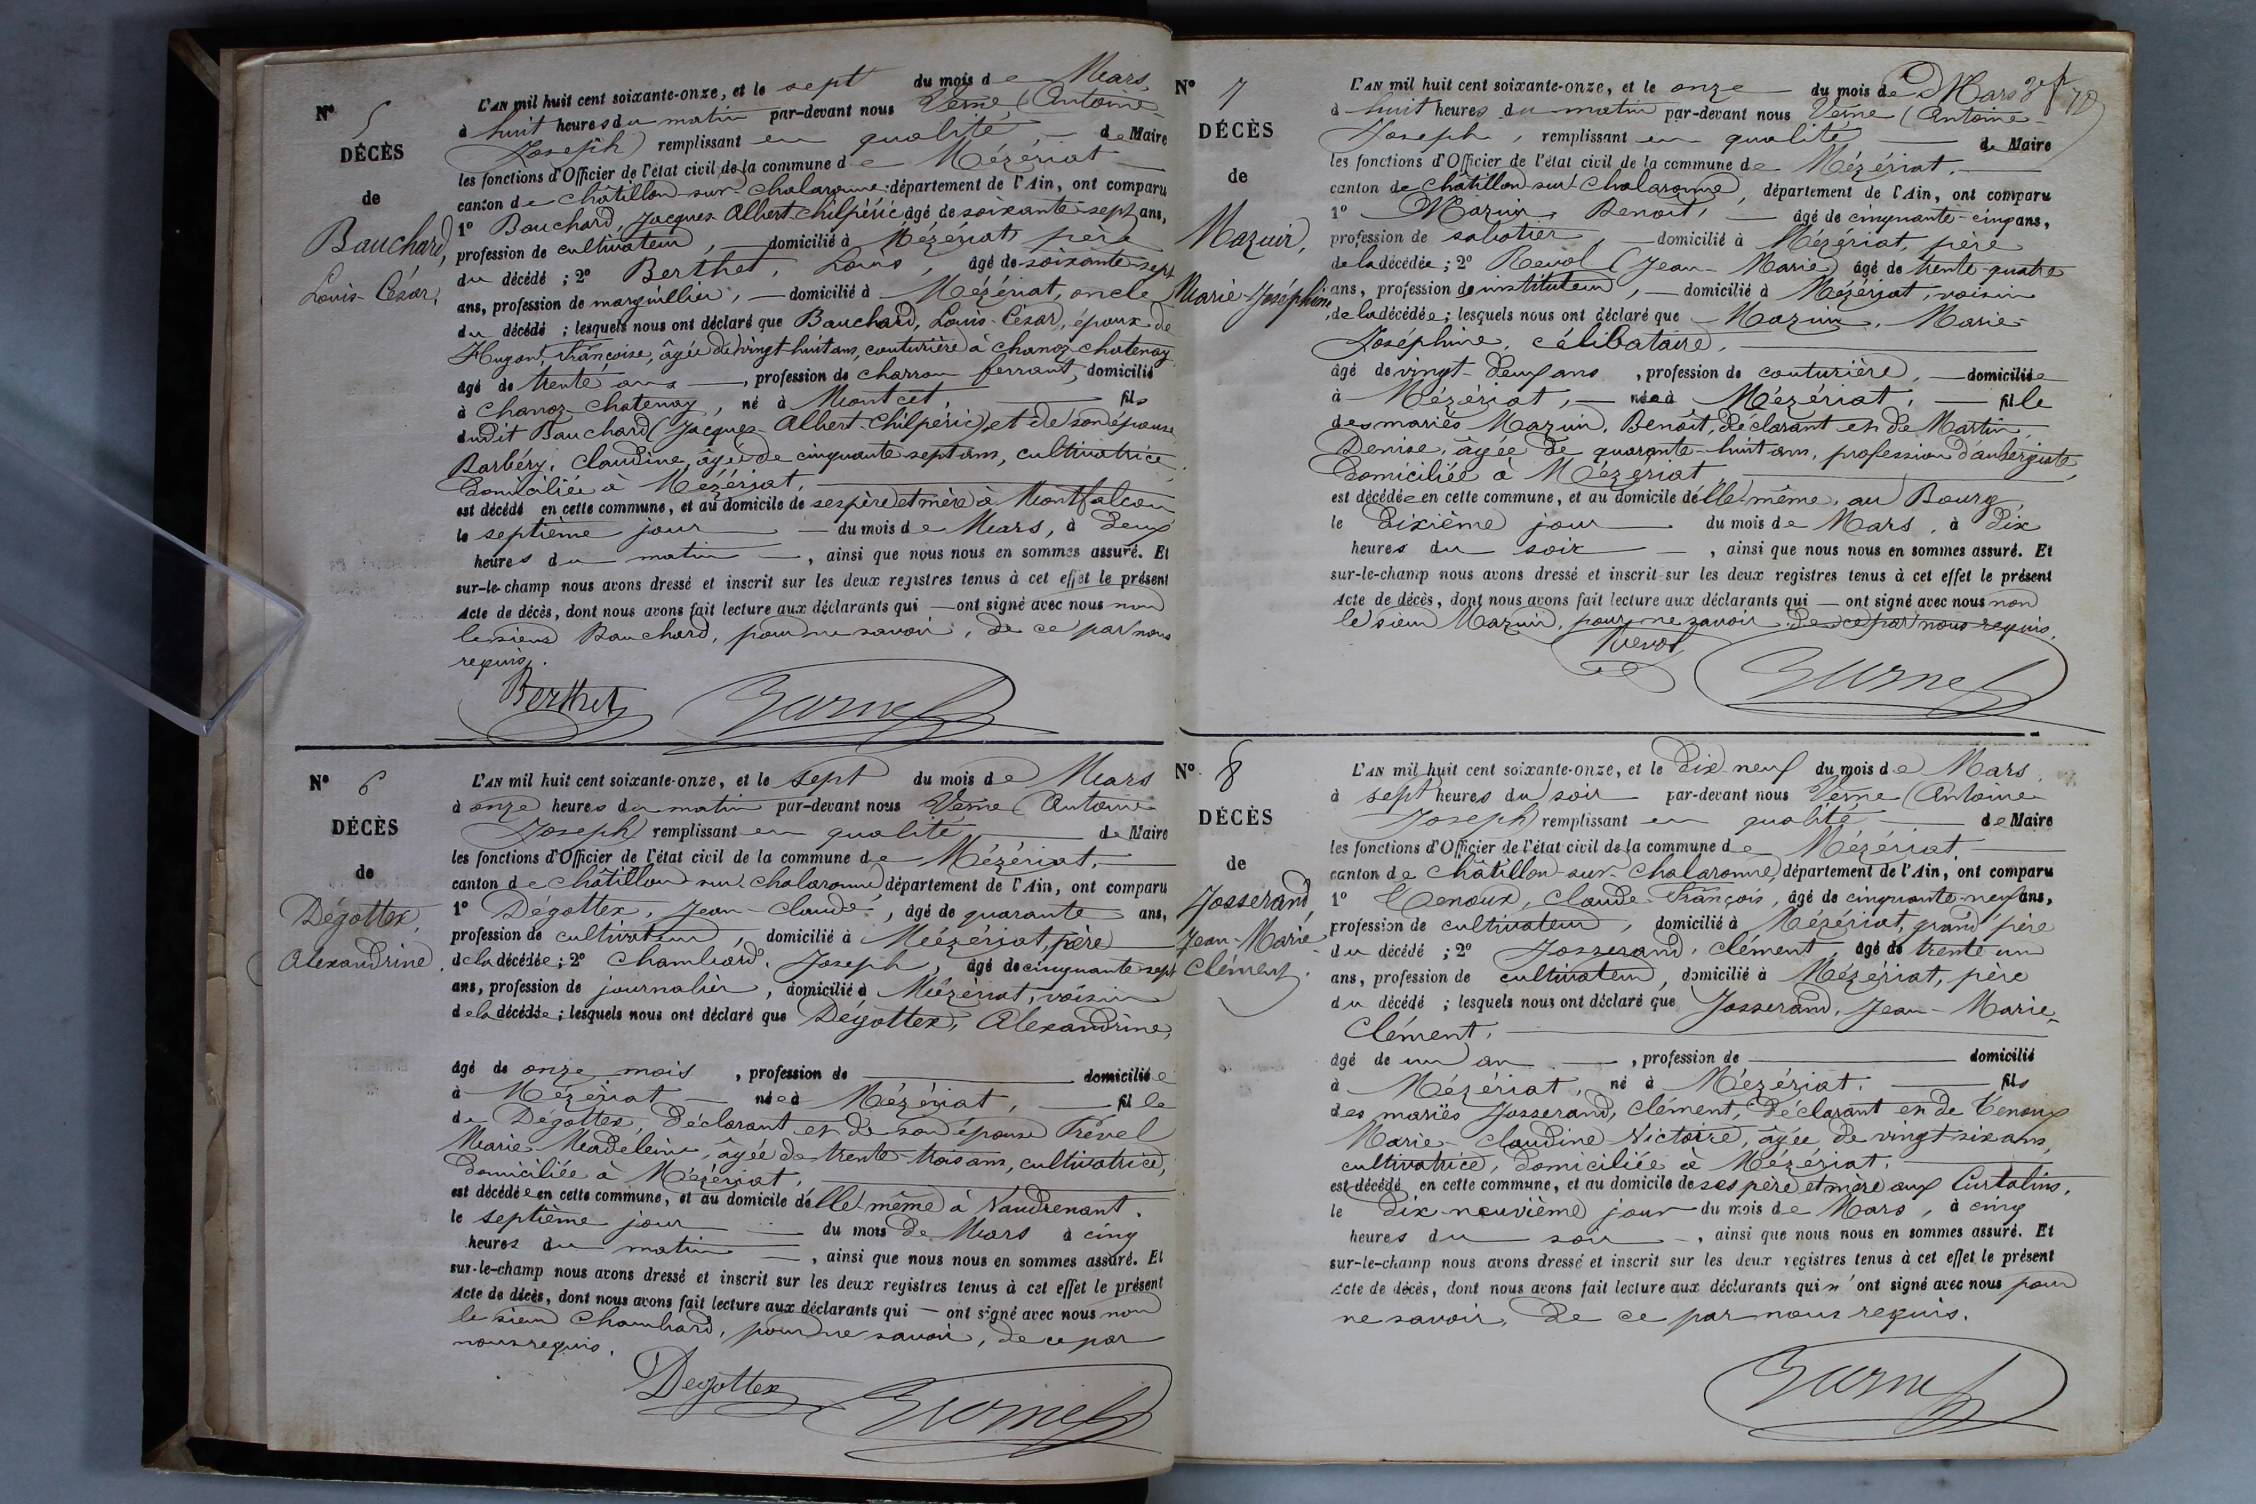 N° 5
DÉCÈS
de
Bauchard,
Louis-César,
L'AN mil huit cent soixante-onze, et le sept du mois de Mars,
à huit heures du matin par-devant nous Verne (Antoine-
Joseph) remplissant en qualité de Maire
les fonctions d'Officier de l'état civil de la commune de Mézériat
canton de Châtillon-sur-Chalaronne département de l'Ain, ont comparu
1° Bauchard, Jacques Albert-Chilpéric âgé de soixante-sept ans,
profession de cultivateur, domicilié à Mézériat, père
du décédé ; 2° Berthet, Louis, âgé de soixante-sept
ans, profession de marguillier, domicilié à Mézériat, oncle
du décédé ; lesquels nous ont déclaré que Bauchard, Louis-César, époux de
Hugon, Françoise, âgée de vingt huit ans, couturière à Chanoz-Chatenay
âgé de trente ans, profession de charron ferrant, domicilié
à Chanoz-Chatenay, né à Montcet, fils
dudit Bauchard (Jacques-Albert-Chilpéric) et de son épouse
Barbéry, Claudine, âgée de cinquante-sept ans, cultivatrice,
domiciliée à Mézériat,
est décédé en cette commune, et au domicile de ses père et mère à Montfalcon
le septième jour du mois de Mars, à deux
heures du matin, ainsi que nous nous en sommes assuré. Et
sur-le-champ nous avons dressé et inscrit sur les deux registres tenus à cet effet le présent
Acte de décès, dont nous avons fait lecture aux déclarants qui ont signé avec nous non
le sieur Bauchard, pour ne savoir, de ce par nous
requis.
Berthet
N° 6
DÉCÈS
de
Dégottex,
Alexandrine.
L'AN mil huit cent soixante-onze, et le sept du mois de Mars
à onze heures du matin par-devant nous Verne (Antoine
Joseph) remplissant en qualité de Maire
les fonctions d'Officier de l'état civil de la commune de Mézériat,
canton de Châtillon-sur-Chalaronne département de l'Ain, ont comparu
1° Dégottex, Jean-Claude, âgé de quarante ans,
profession de cultivateur, domicilié à Mézériat, père
de la décédée ; 2° Chambard, Joseph, âgé de cinquante-sept
ans, profession de journalier, domicilié à Mézériat, voisin
de la décédée ; lesquels nous ont déclaré que Dégottex, Alexandrine,
âgé de onze mois, profession de domiciliée
à Mézériat née à Mézériat, fille
de Dégottex, déclarant et de son épouse Prével
Marie-Madeleine, âgée de trente-trois ans, cultivatrice,
domiciliée à Mézériat,
est décédée en cette commune, et au domicile d'elle-même à Vaudrenant.
le septième jour du mois de Mars à cinq
heures du matin, ainsi que nous nous en sommes assuré. Et
sur-le-champ nous avons dressé et inscrit sur les deux registres tenus à cet effet le présent
Acte de décès, dont nous avons fait lecture aux déclarants qui ont signé avec nous non
le sieur Chambard, pour ne savoir, de ce par
nous requis.
Degottex
N° 7
DÉCÈS
de
Mazuir,
Marie-Joséphine,
L'AN mil huit cent soixante-onze, et le onze du mois de Mars
à huit heures du matin par-devant nous Verne (Antoine-
Joseph, remplissant en qualité de Maire
les fonctions d'Officier de l'état civil de la commune de Mézériat,
canton de Châtillon-sur-Chalaronne, département de l'Ain, ont comparu
1° Mazuir, Benoît, âgé de cinquante-cinq ans,
profession de sabotier, domicilié à Mézériat, père
de la décédée ; 2° Revol (Jean-Marie) âgé de trente-quatre
ans, profession de instituteur, domicilié à Mézériat, voisin
de la décédée ; lesquels nous ont déclaré que Mazuir, Marie-
Joséphine, célibataire,
âgé de vingt-deux ans, profession de couturière, domiciliée
à Mézériat, née à Mézériat, fille
des mariés Mazuir, Benoît, déclarant et de Martin,
Denise, âgée de quarante-huit ans, profession d'aubergiste,
domiciliée à Mézériat
est décédée en cette commune, et au domicile d'elle-même, au Bourg,
le dixième jour du mois de Mars, à dix
heures du soir, ainsi que nous nous en sommes assuré. Et
sur-le-champ nous avons dressé et inscrit sur les deux registres tenus à cet effet le présent
Acte de décès, dont nous avons fait lecture aux déclarants qui ont signé avec nous non
le sieur Mazuir, pour ne savoir de ce par nous requis.
Revol
N° 8
DÉCÈS
de
Josserand,
Jean-Marie
Clément.
L'AN mil huit cent soixante-onze, et le dix-neuf du mois de Mars
à sept heures du soir par-devant nous Verne (Antoine
Joseph) remplissant en qualité de Maire
les fonctions d'Officier de l'état civil de la commune de Mézériat
canton de Châtillon-sur-Chalaronne, département de l'Ain, ont comparu
1° Tenoux, Claude-François, âgé de cinquante-neuf ans,
profession de cultivateur, domicilié à Mézériat, grand père
du décédé ; 2° Josserand, Clément, âgé de trente un
ans, profession de cultivateur, domicilié à Mézériat, père
du décédé ; lesquels nous ont déclaré que Josserand, Jean-Marie-
Clément,
âgé de un an, profession de domicilié
à Mézériat, né à Mézériat, fils
des mariés Josserand, Clément, déclarant et de Tenoux
Marie-Claudine Victoire, âgée de vingt-six ans,
cultivatrice, domiciliée à Mézériat,
est décédé en cette commune, et au domicile de ses père et mère aux Curtalins,
le dix-neuvième jour du mois de Mars, à cinq
heures du soir, ainsi que nous nous en sommes assuré. Et
sur-le-champ nous avons dressé et inscrit sur les deux registres tenus à cet effet le présent
Acte de décès, dont nous avons fait lecture aux déclarants qui n'ont signé avec nous pour
ne savoir, de ce par nous requis.